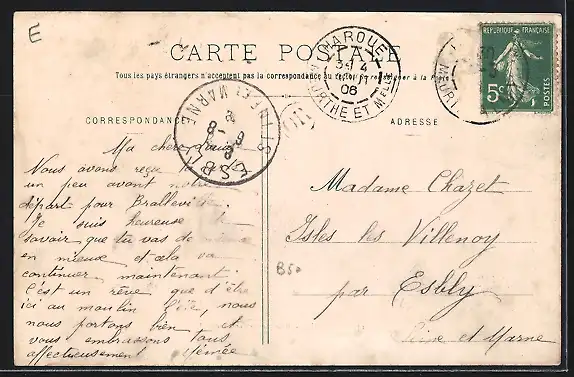 E
CARTE POSTALE
Tous les pays étrangers n'acceptent pas la correspondance au recto
HAROUÉ
3E 4
08
MEURTHE ET MLLE
REPUBLIQUE FRANÇAISE
5c
POSTES
MEURT
ESBLY
SEINE ET MARNE
CORRESPONDANCE
ADRESSE
Ma chère
Nous avons reçu
un peu avant notre
départ pour Bralleville.
Je suis heureuse de
savoir que tu vas de mieux
en mieux et cela va
continuer maintenant.
C'est un rêve que d'être
ici au moulin l'été, nous
nous portons bien et
vous embrassons tous
affectueusement
Madame Chazet
Isles les Villenoy
par Esbly
Seine et Marne
B50